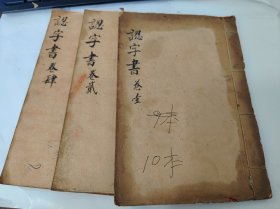 認字書卷肆
認字書卷貳
認字書卷壹
9本
10本